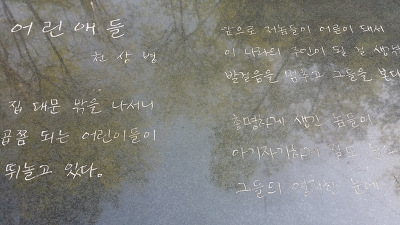 어린애들
천상병
집 대문 밖을 나서니
곱쯤 되는 어린이들이
뛰놀고 있다.
앞으로 저놈들이 어른이 돼서
이 나라의 주인이 될 걸 생각
발걸음을 멈추고 그들을 보다
총명하게 생긴 놈들이
아기자기하게
그들의 눈에